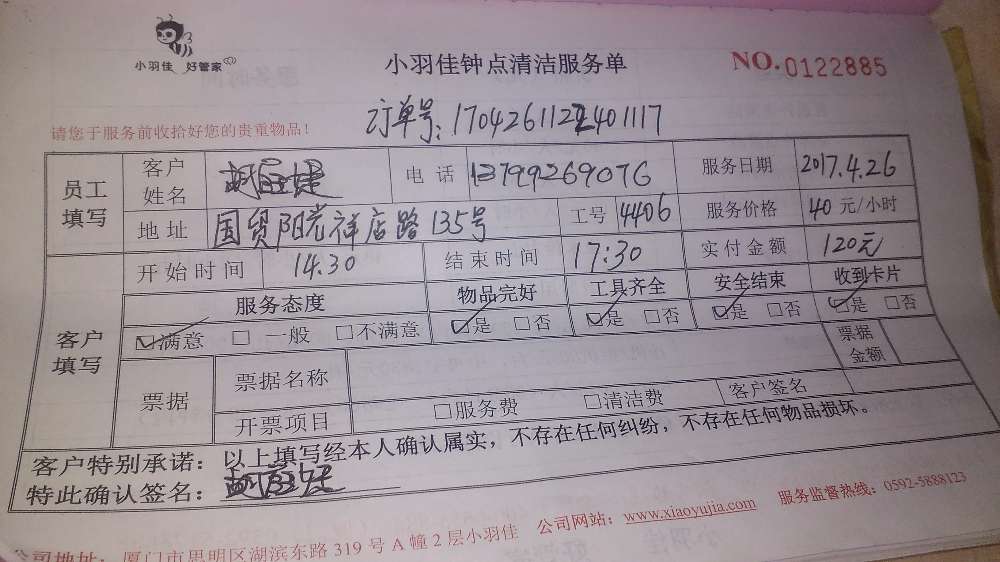 小羽佳 好管家
小羽佳钟点清洁服务单
NO.0122885
请您于服务前收拾好您的贵重物品!
订单号:
员工填写 客户姓名 电话 13799269076 服务日期 2017.4.26
地址 国贸阳光祥店路135号 工号 4406 服务价格 40元/小时
客户填写 开始时间 14:30 结束时间 17:30 实付金额 120元
服务态度 物品完好 工具齐全 安全结束 收到卡片
☑满意 □一般 □不满意 ☑是 □否 ☑是 □否 ☑是 □否 ☑是 □否
票据 票据名称 票据金额
开票项目 □服务费 □清洁费 客户签名
客户特别承诺:以上填写经本人确认属实,不存在任何纠纷,不存在任何物品损坏。
特此确认签名:
公司地址:厦门市思明区湖滨东路319号A幢2层小羽佳 公司网站:www.xiaoyujia.com 服务监督热线:0592-5888123